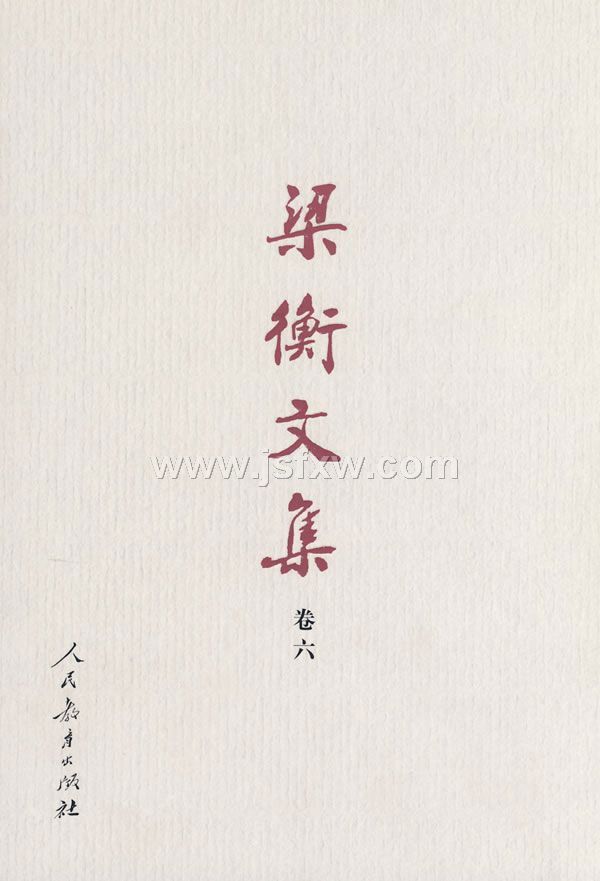 梁衡文集
www.jsfxw.com
卷六
人民教育出版社